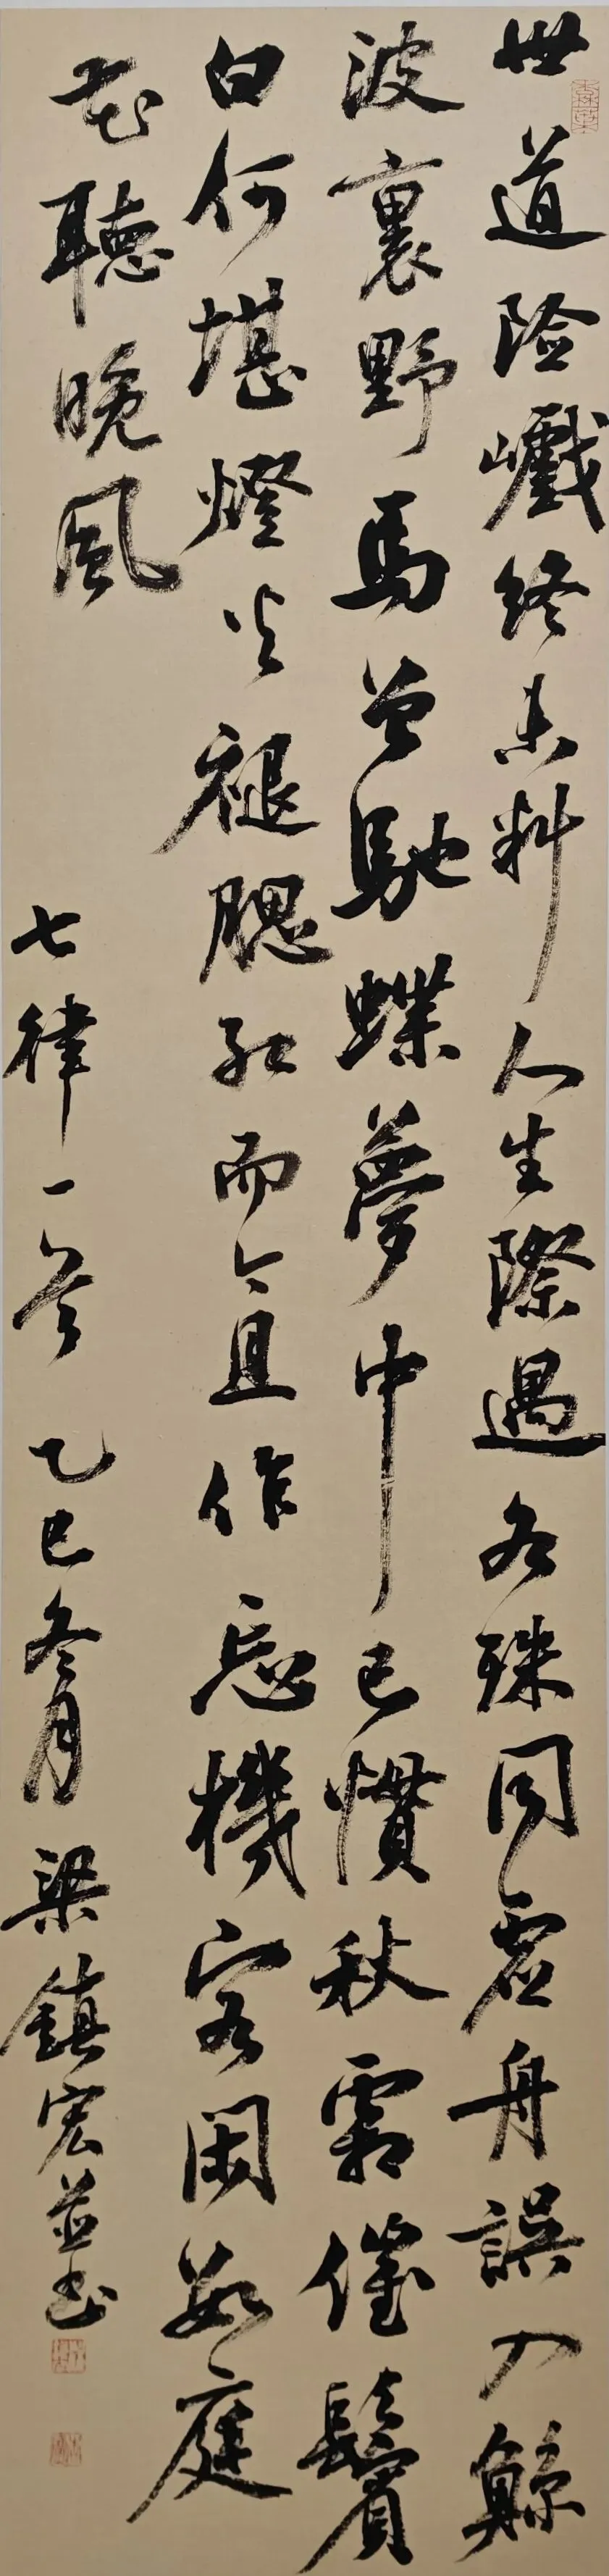 世道险巇终未料人生際遇各殊同虚舟誤入鯨
波裏野馬曾馳蝶夢中已慣秋霜催鬢
白何堪燈火褪腮红而今且作忘機客閑數庭
花聽晚風
七律一首 乙巳冬月 梁鎮宏並书